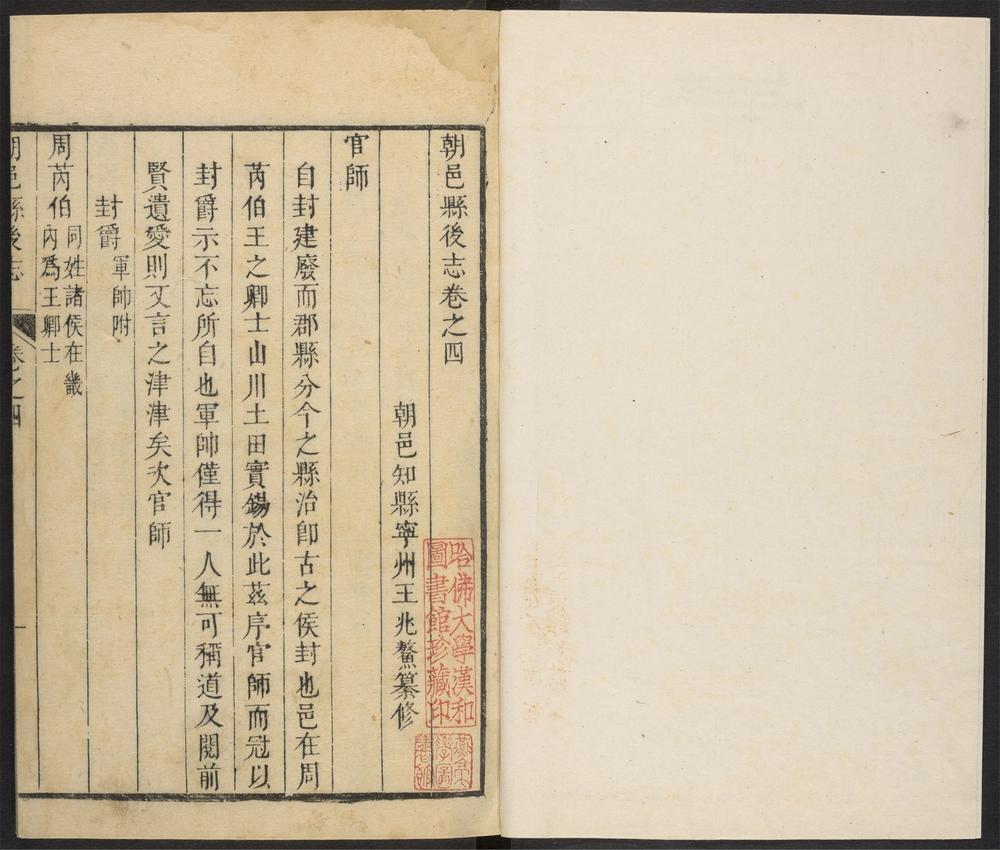 朝邑縣後志卷之四
朝邑知縣寧州王兆鰲纂修
官師
自封建廢而郡縣分今之縣治卽古之侯封也邑在周
芮伯王之卿士山川土田實錫於此茲序官師而冠以
封爵示不忘所自也軍帥僅得一人無可稱道及閱前
賢遺愛則又言之津津矣次官師
封爵軍帥附
周芮伯同姓諸侯在畿
內爲王卿士
朝邑縣後志 卷之四 一
哈佛大學漢和
圖書館珍藏印